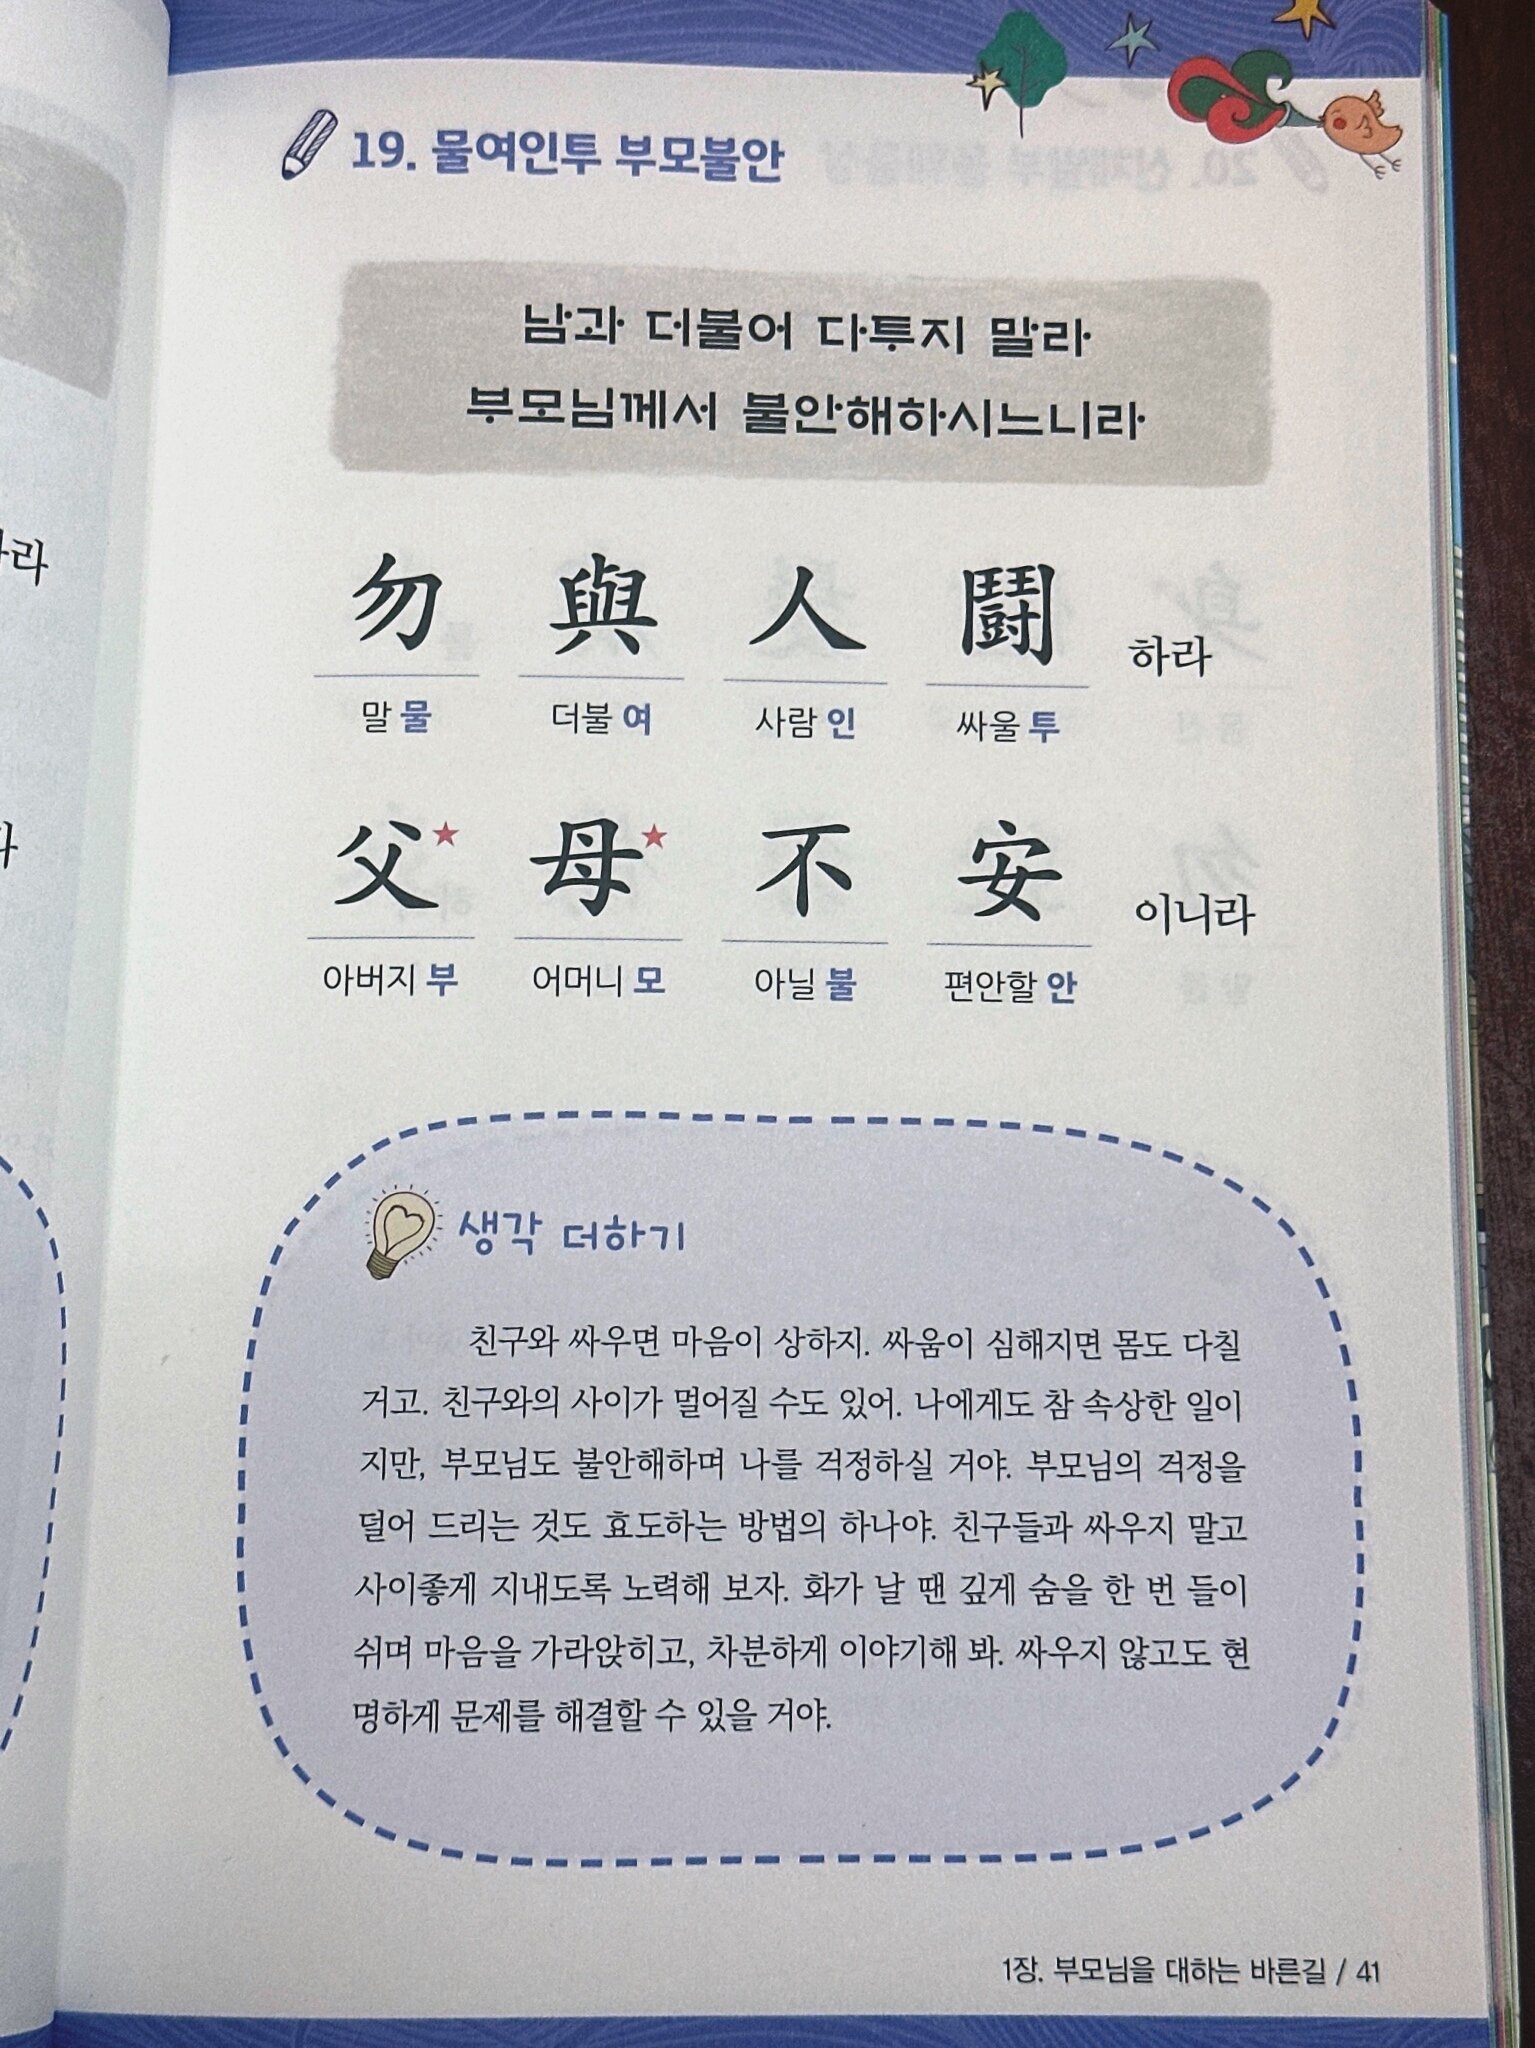 19. 물여인투 부모불안
남과 더불어 다투지 말라
부모님께서 불안해하시느니라
勿 與 人 鬪 하라
말 물 더불 여 사람 인 싸울 투
父★ 母★ 不 安 이니라
아버지 부 어머니 모 아닐 불 편안할 안
생각 더하기
친구와 싸우면 마음이 상하지. 싸움이 심해지면 몸도 다칠
거고. 친구와의 사이가 멀어질 수도 있어. 나에게도 참 속상한 일이
지만, 부모님도 불안해하며 나를 걱정하실 거야. 부모님의 걱정을
덜어 드리는 것도 효도하는 방법의 하나야. 친구들과 싸우지 말고
사이좋게 지내도록 노력해 보자. 화가 날 땐 깊게 숨을 한 번 들이
쉬며 마음을 가라앉히고, 차분하게 이야기해 봐. 싸우지 않고도 현
명하게 문제를 해결할 수 있을 거야.
1장. 부모님을 대하는 바른길 / 41